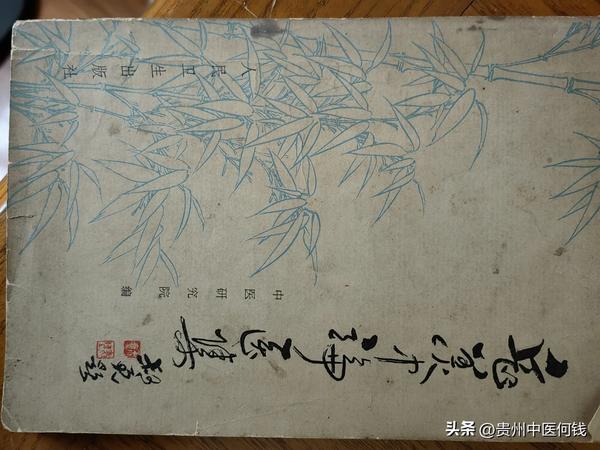 岳美中論医集
中医研究院 编
人民卫生出版社
头条 @贵州中医何钱